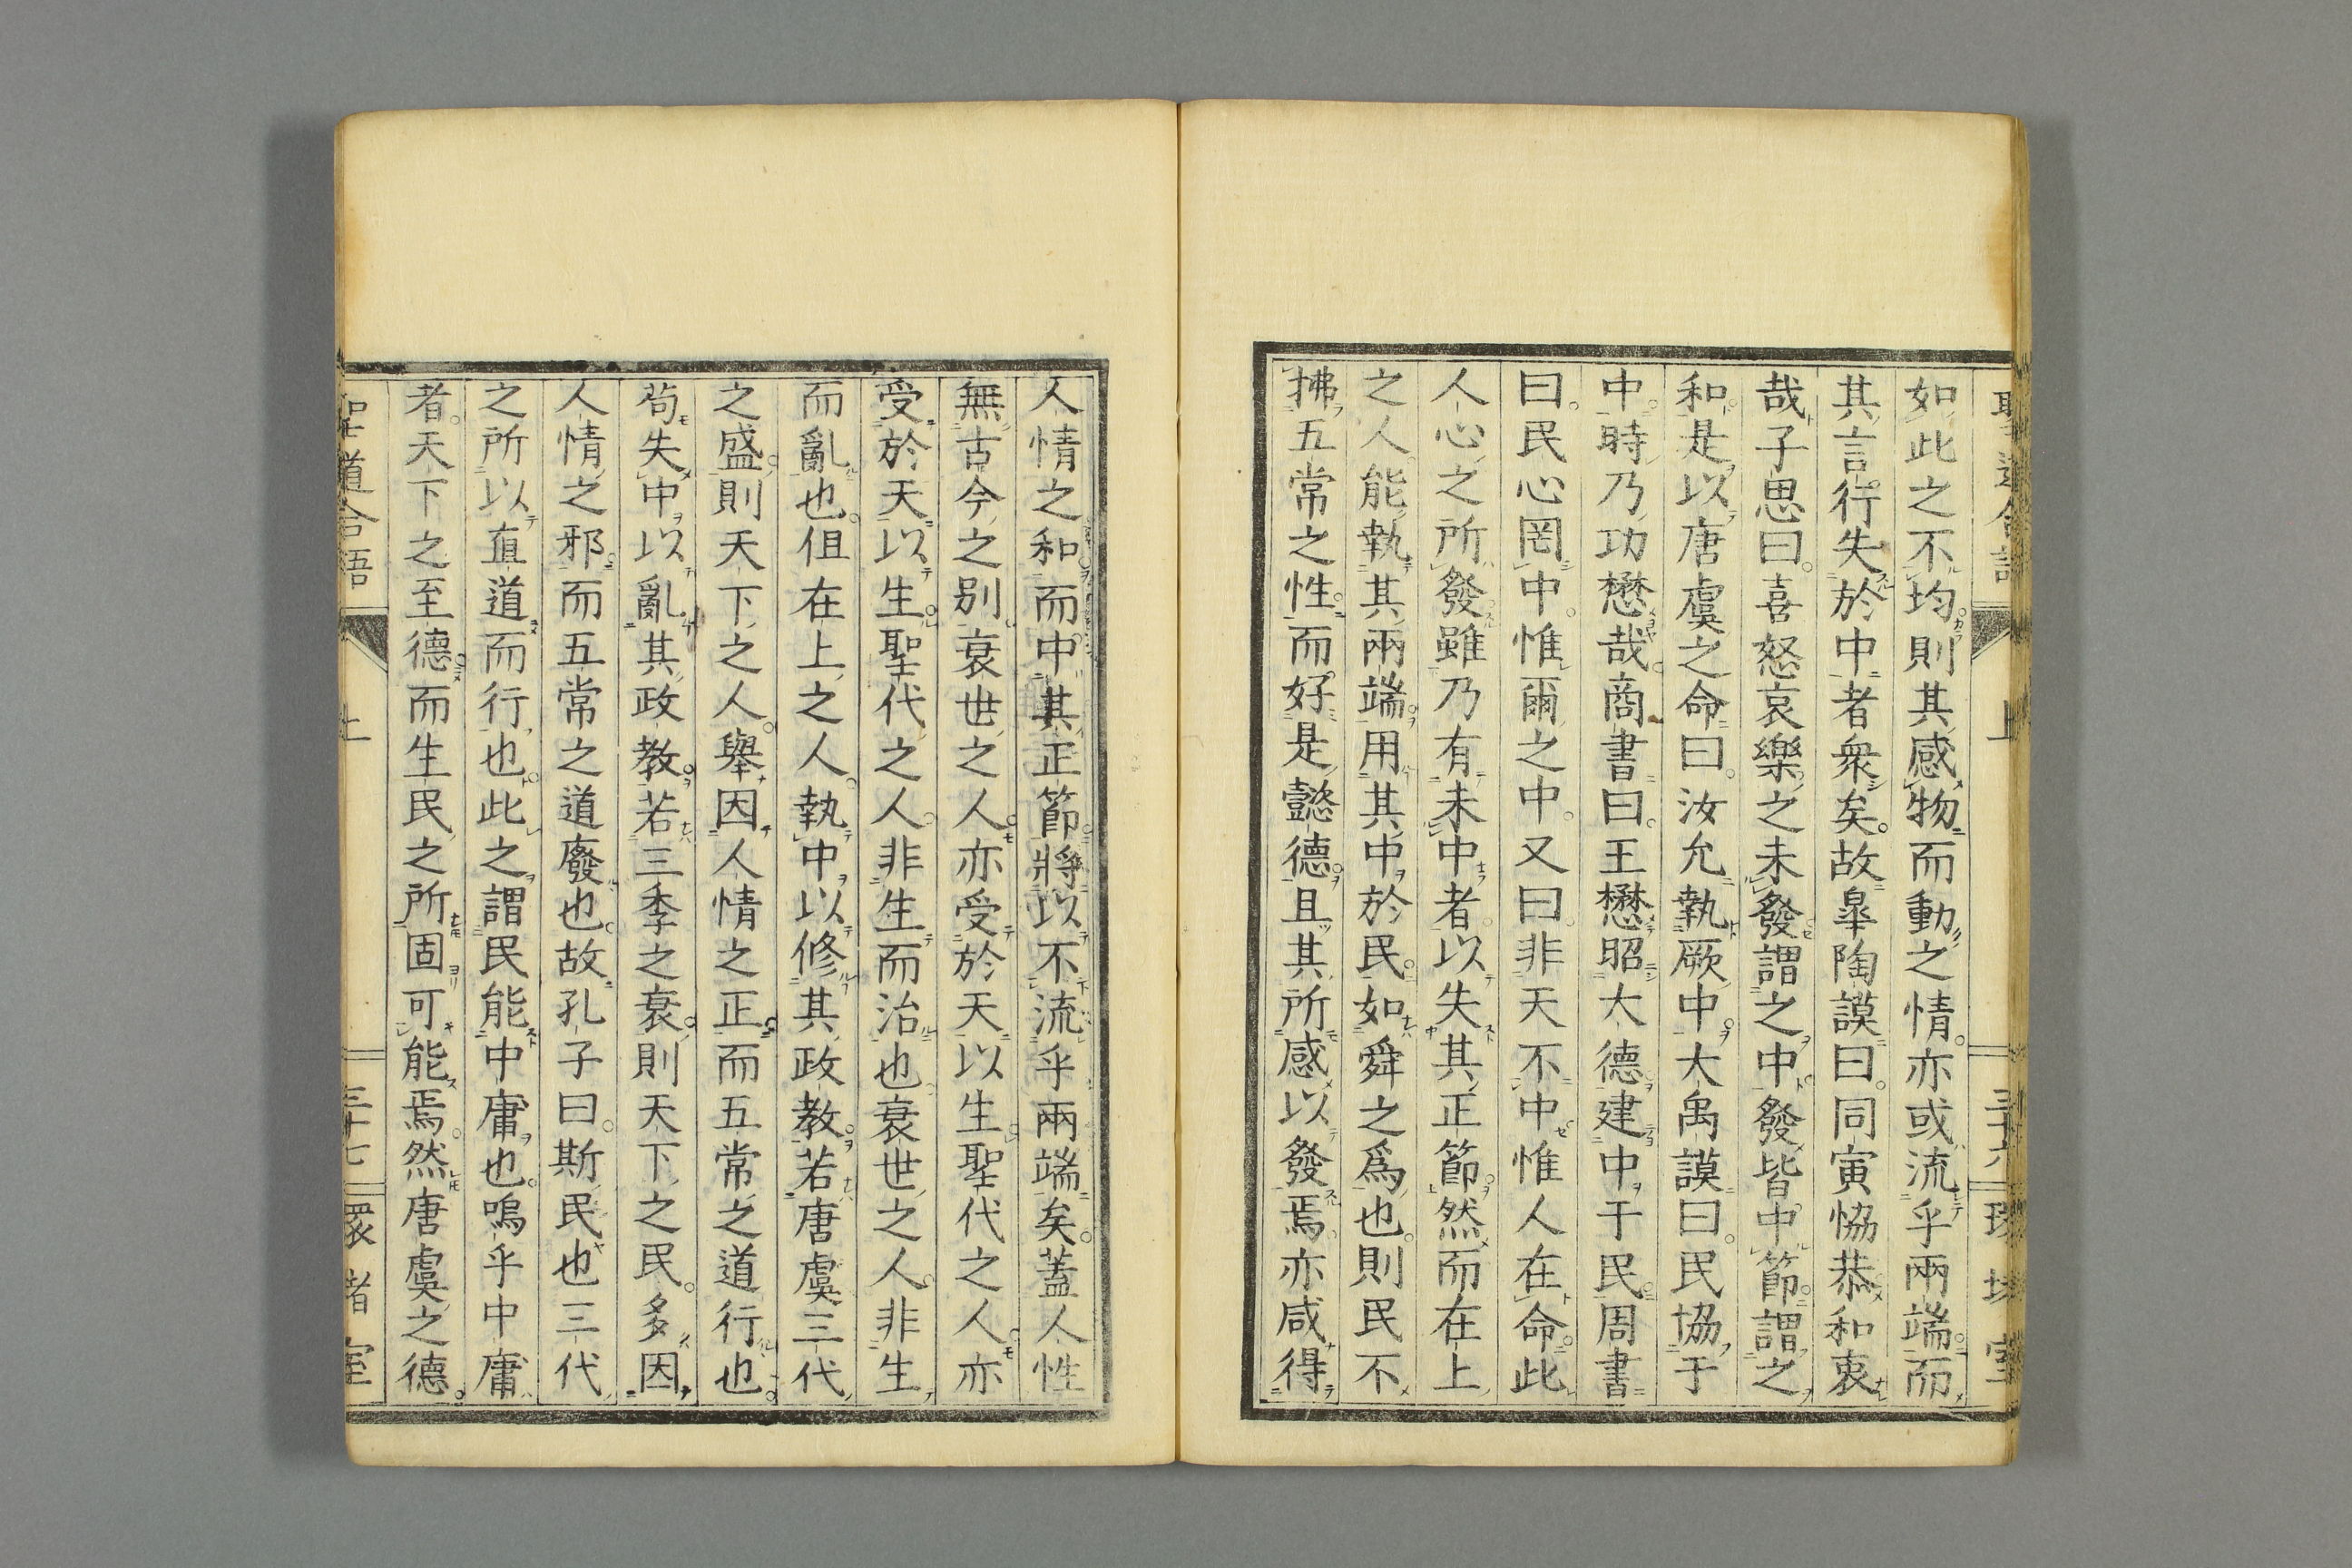 如此之不均則其感物而動之情亦或流乎兩端而
其言行失於中者衆矣故皐陶謨曰同寅恊恭和衷
哉子思曰喜怒哀樂之未發謂之中發皆中節謂之
和是以唐虞之命曰汝允執厥中大禹謨曰民協于
中時乃功懋哉商書曰王懋昭大德建中于民周書
曰民心罔中惟爾之中又曰非天不中惟人在命此
人心之所發雖乃有未中者以失其正節然而在上
之人能執其兩端用其中於民如舜之爲也則民不
拂五常之性而好是懿德且其所感以發焉亦咸得
人情之和而中其正節將以不流乎兩端矣蓋人性
無古今之別衰世之人亦受於天以生聖代之人亦
受於天以生聖代之人非生而治也衰世之人非生
而亂也伹在上之人執中以修其政教若唐虞三代
之盛則天下之人舉因人情之正而五常之道行也
苟失中以亂其政教若三季之衰則天下之民多因
人情之邪而五常之道廢也故孔子曰斯民也三代
之所以直道而行也此之謂民能中庸也嗚乎中庸
者天下之至德而生民之所固可能焉然唐虞之德
聖道合語 上 三十七